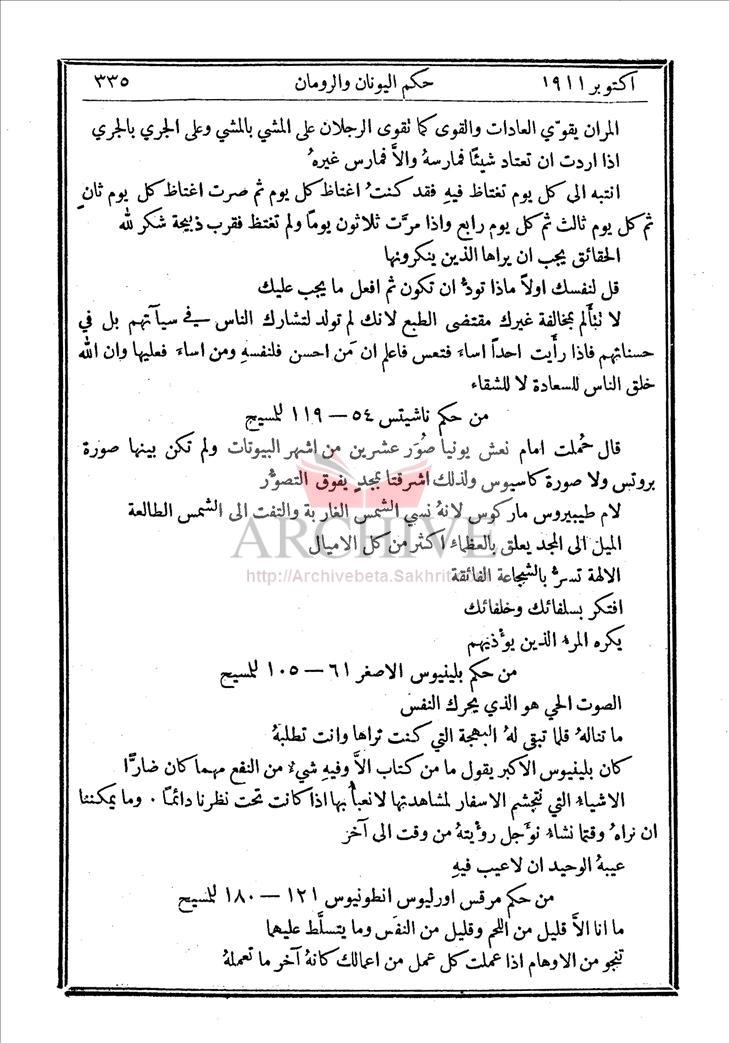 اكتوبر ١٩١١ حكم اليونان والرومان ٣٣٥
المران يقوّي العادات والقوى كما تقوى الرجلان على المشي بالمشي وعلى الجري بالجري
اذا اردت ان تعتاد شيئًا فمارسهُ والاَّ فمارس غيرهُ
انتبه الى كل يوم تغتاظ فيهِ فقد كنتُ اغتاظ كل يوم ثم صرت اغتاظ كل يوم ثانٍ
ثم كل يوم ثالث ثم كل يوم رابع واذا مرَّت ثلاثون يومًا ولم تغتظ فقرب ذبيحة شكر لله
الحقائق يجب ان يراها الذين ينكرونها
قل لنفسك اولاً ماذا تودُّ ان تكون ثم افعل ما يجب عليك
لا نتأَلم بمخالفة غيرك مقتضى الطبع لانك لم تولد لتشارك الناس في سيآتهم بل في
حسناتهم فاذا رأَيت احدًا اساءَ فتعس فاعلم ان مَن احسن فلنفسهِ ومن اساءَ فعليها وان الله
خلق الناس للسعادة لا للشقاء
من حكم ناشيتس ٥٤ — ١١٩ للمسيح
قال حُملت امام نعش يونيا صُوَر عشرين من اشهر البيوتات ولم تكن بينها صورة
بروتس ولا صورة كاسيوس ولذلك اشرقتا بمجدٍ يفوق التصوُّر
لام طيبيروس ماركوس لانهُ نسي الشمس الغاربة والتفت الى الشمس الطالعة
الميل الى المجد يعلق بالعظماء اكثر من كل الاميال
ARCHIVE
الالهة تسرُّ بالشجاعة الفائقة
http://Archivebeta.Sakhrit
افتكر بسلفائك وخلفائك
يكره المرءُ الذين يوُّذيهم
من حكم بلينيوس الاصغر ٦١ — ١٠٥ للمسيح
الصوت الحي هو الذي يحرك النفس
ما تنالهُ قلما تبقى لهُ البهجة التي كنت تراها وانت تطلبهُ
كان بلينيوس الاكبر يقول ما من كتاب الاَّ وفيهِ شيءٌ من النفع مهما كان ضارًّا
الاشياءُ التي نتجشم الاسفار لمشاهدتها لا نعبأُ بها اذا كانت تحت نظرنا دائمًا ٠ وما يمكننا
ان نراهُ وقتما نشاءُ نوَّجل روُّيتهُ من وقت الى آخر
عيبهُ الوحيد ان لا عيب فيهِ
من حكم مرقس اورليوس انطونيوس ١٢١ — ١٨٠ للمسيح
ما انا الاَّ قليل من اللحم وقليل من النفَس وما يتسلَّط عليهما
تنجو من الاوهام اذا عملت كل عمل من اعمالك كانهُ آخر ما تعملهُ